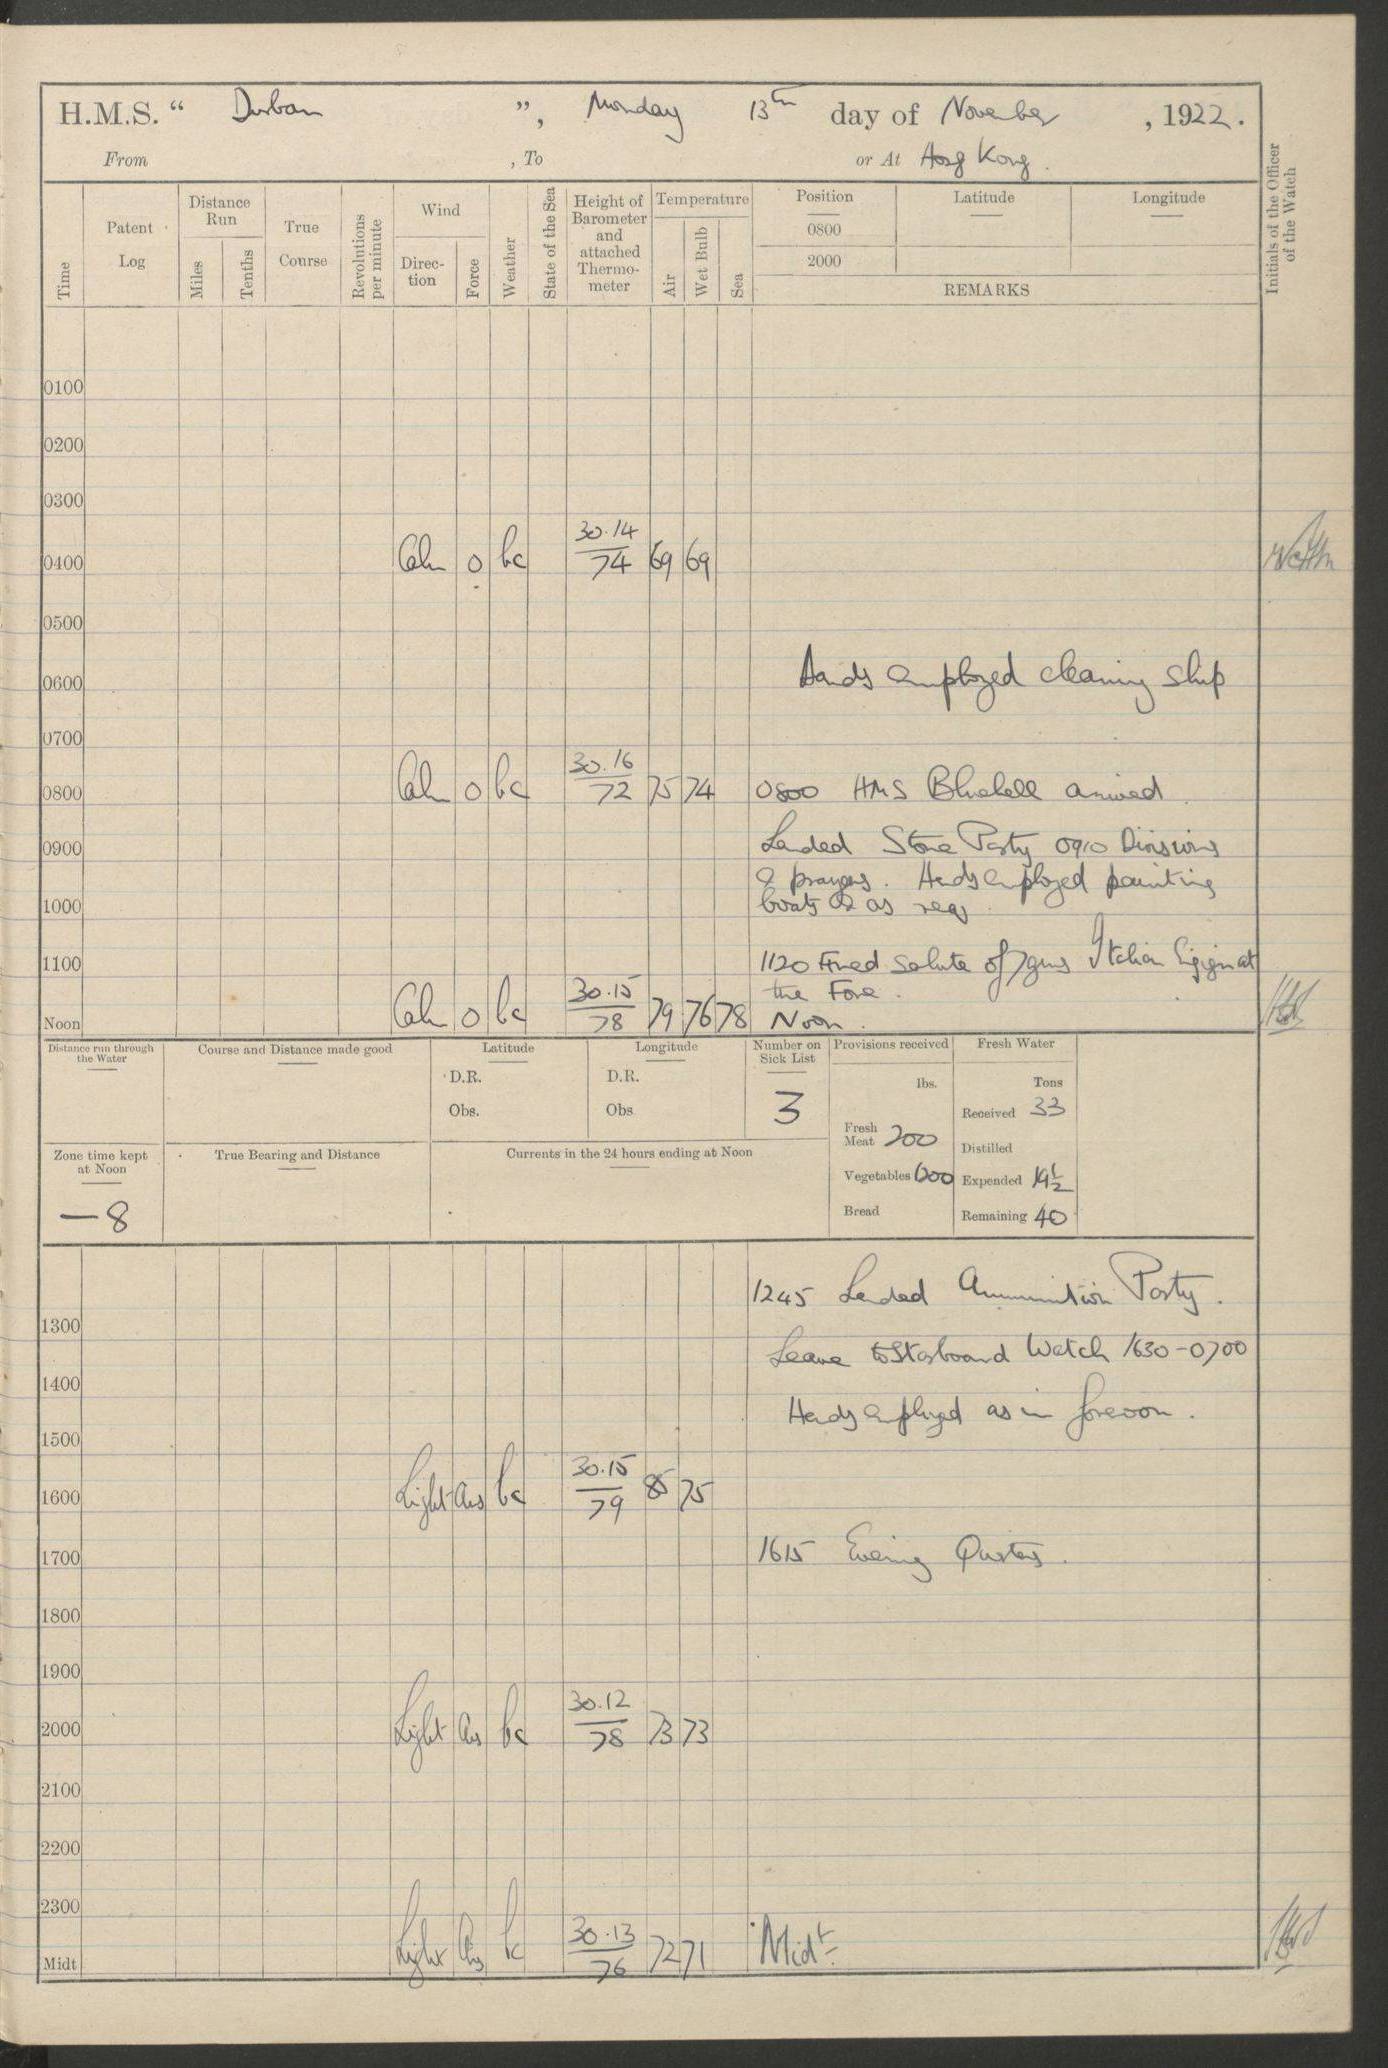 H.M.S. “ Durban ”, Monday 13th day of November, 1922.
From , To or At Hong Kong.
Time
Patent Log
Distance Run
Miles
Tenths
True Course
Revolutions per minute
Wind
Direction
Force
Weather
State of the Sea
Height of Barometer and attached Thermometer
Temperature
Air
Wet Bulb
Sea
Position Latitude Longitude
0800
2000
REMARKS
Initials of the Officer of the Watch
0100
0200
0300
0400 Calm 0 bc 30.14/74 69 69
0500
0600 Hands employed cleaning ship
0700
0800 Calm 0 bc 30.16/72 75 74 0800 HMS Bluebell arrived.
0900 Landed Stone Party 0910 Divisions
& prayers. Hands employed painting
1000 boats & as req
1100 1120 Fired salute of 7 guns Italian Ensign at
the Fore.
Noon Calm 0 bc 30.15/78 79 76 78 Noon.
Distance run through the Water
Course and Distance made good
Latitude
D.R.
Obs.
Longitude
D.R.
Obs
Number on Sick List
3
Provisions received
lbs.
Fresh Meat 200
Vegetables 600
Bread
Fresh Water
Tons
Received 33
Distilled
Expended 19½
Remaining 40
Zone time kept at Noon
— 8
True Bearing and Distance
Currents in the 24 hours ending at Noon
1245 Landed Ammunition Party.
1300
Leave to Starboard Watch 1630-0700
1400
Hands employed as in forenoon.
1500
1600 Light Airs bc 30.15/79 85 75
1700 1615 Evening Quarters.
1800
1900
2000 Light Airs bc 30.12/78 73 73
2100
2200
2300
Midt Light Airs bc 30.13/76 72 71 Midt